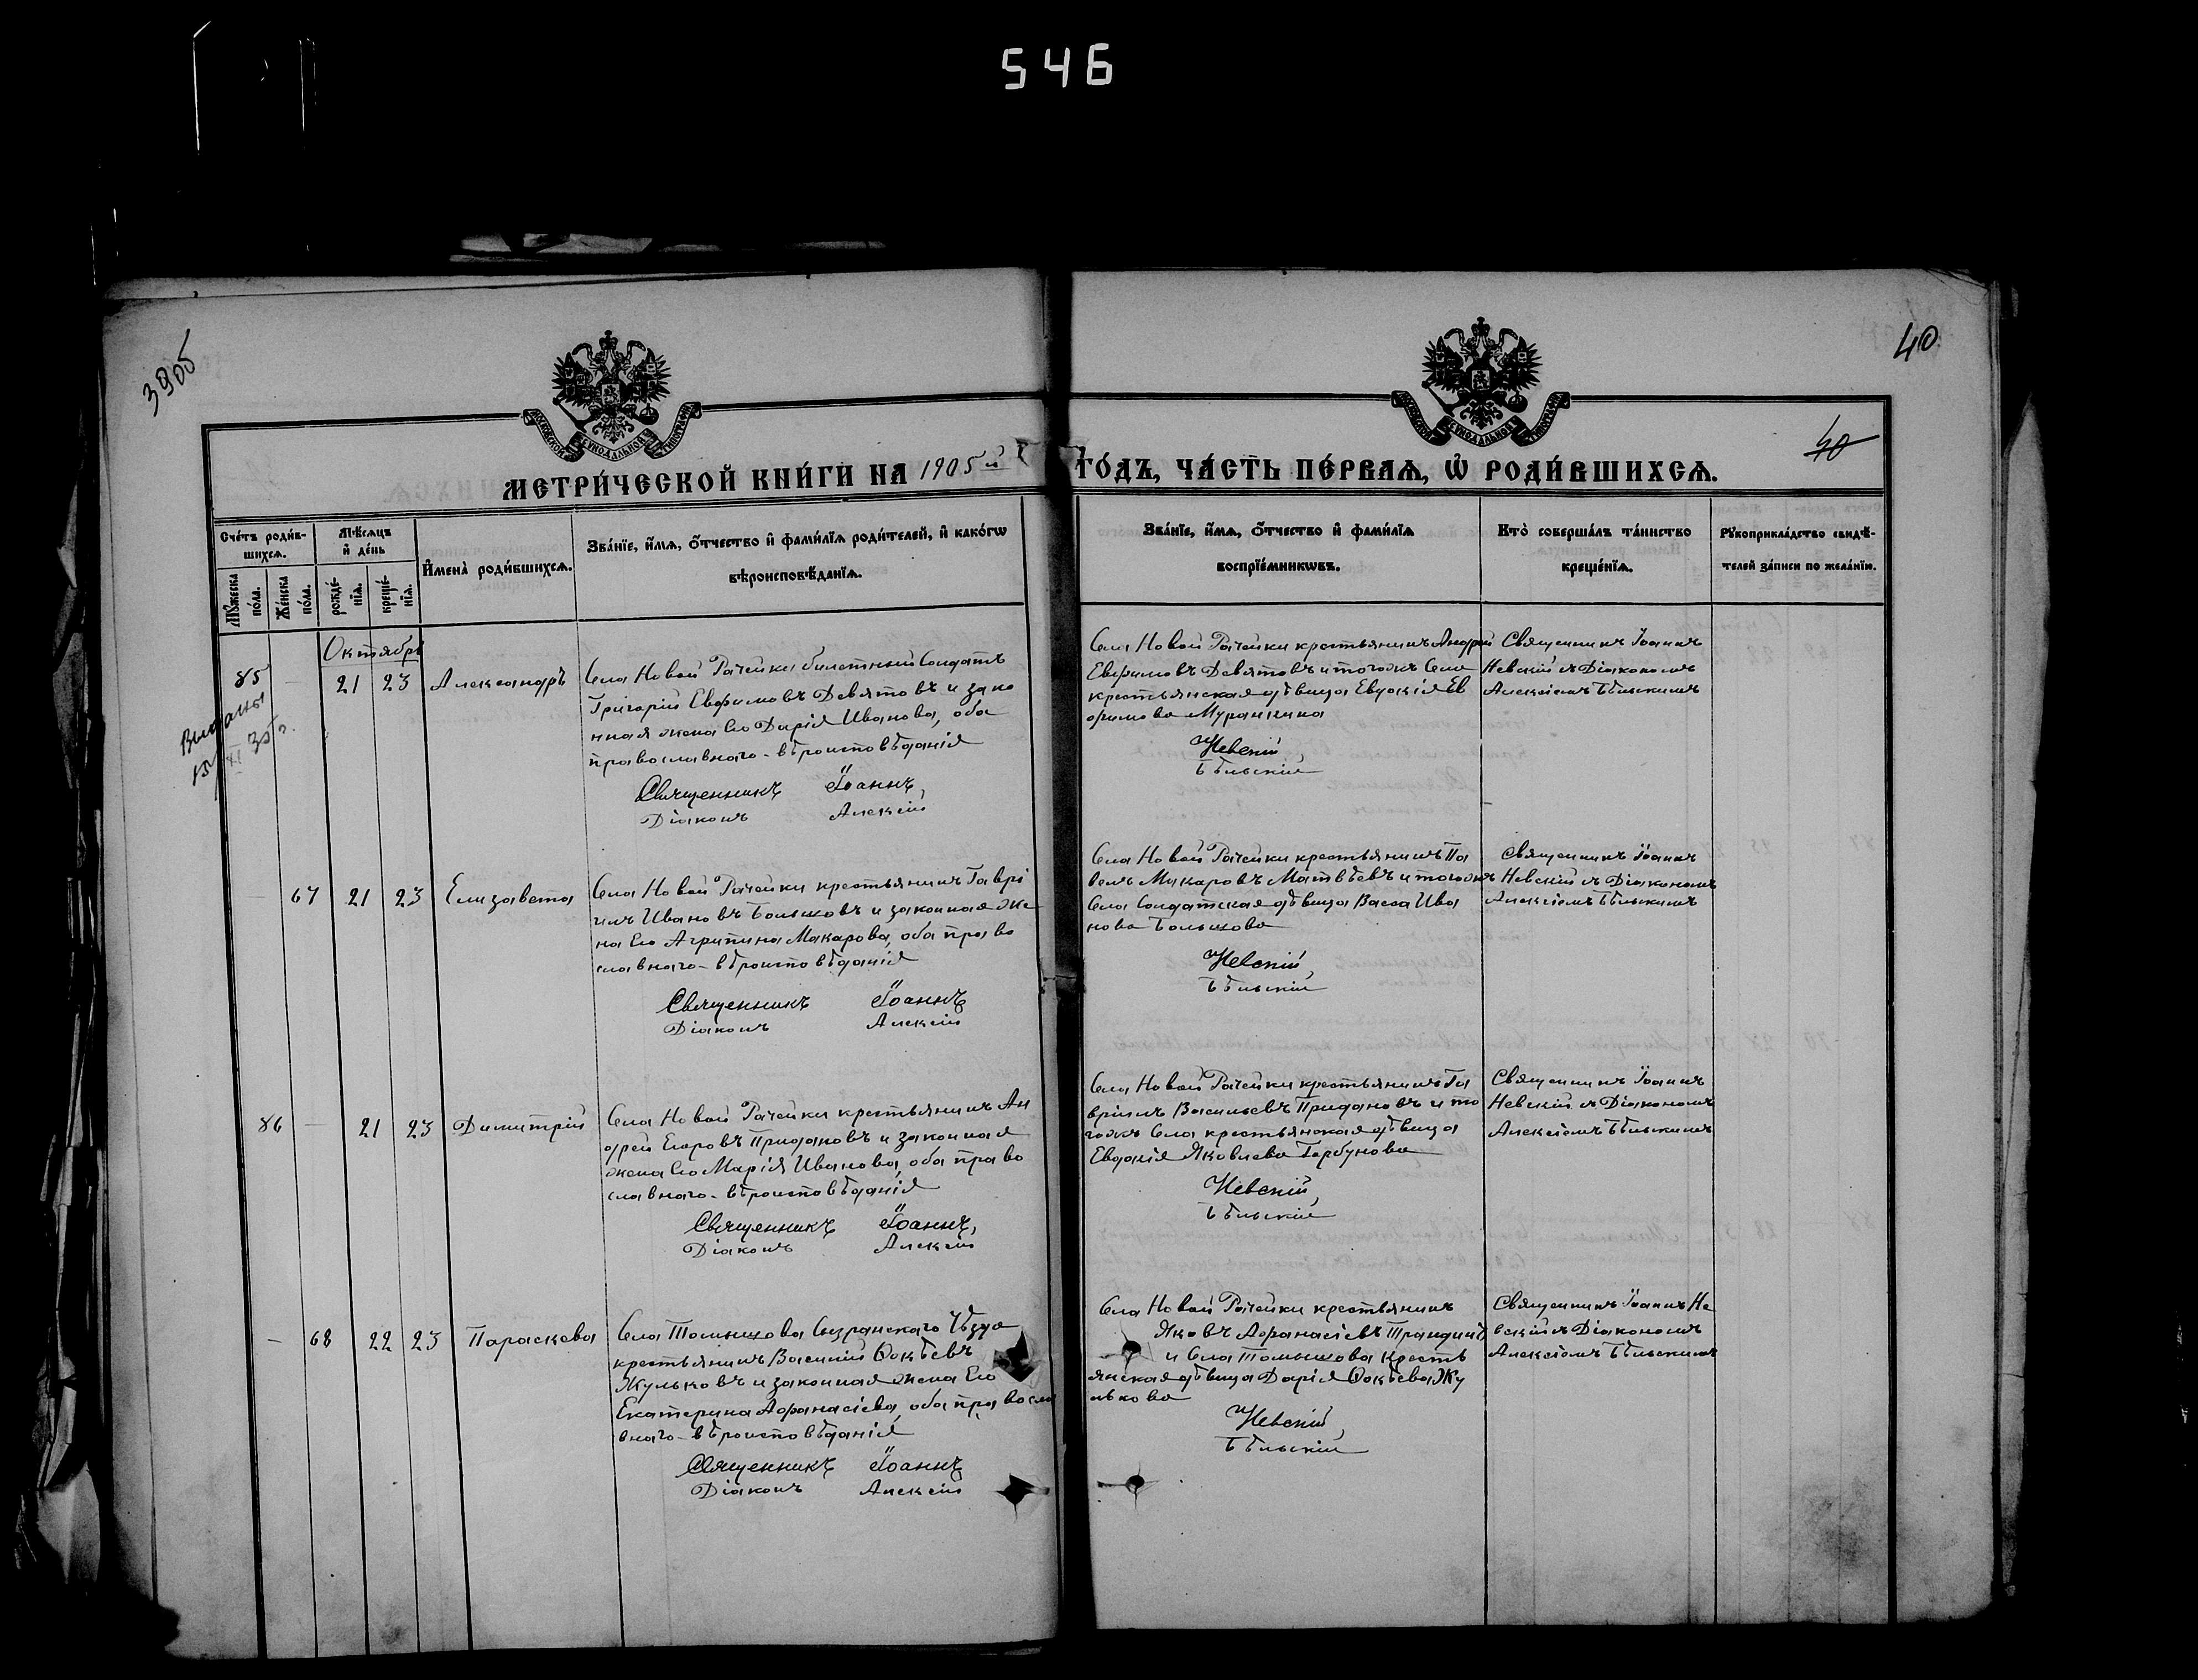 546
39об
40
40
МОСКОВСКОЙ СѴНОДАЛЬНОЙ ТИПОГРАФІИ
МОСКОВСКОЙ СѴНОДАЛЬНОЙ ТИПОГРАФІИ
МЕТРИ́ЧЕСКОЙ КНИ́ГИ НА 1905й ГО́ДЪ, ЧА́СТЬ ПЕ́РВАѦ, Ѡ҆ РОДИ́ВШИХСѦ.
Сче́тъ роди́в-
шихсѧ.
Мꙋ́жеска
по́ла.
Же́нска
по́ла.
Мѣ́сѧцъ
и҆ де́нь
рожде́-
нїѧ.
креще́-
нїѧ.
И҆мена̀ роди́вшихсѧ.
Зва́нїе, и҆́мѧ, ѻ҆́тчество и҆ фами́лїѧ роди́телей, и҆ како́гѡ
вѣроисповѣ́данїѧ.
Зва́нїе, и҆́мѧ, ѻ҆́тчество и҆ фами́лїѧ
воспрїе́мникѡвъ.
Кто̀ соверша́лъ та́инство
креще́нїѧ.
Рꙋкоприкла́дство свидѣ́-
телей за́писи по жела́нїю.
Октябрь
85 — 21 23 Александръ
Выданы
Села Новой Рачейки билетный Солдатъ
Григорій Евфимовъ Девятовъ и зако
нная жена Его Дарія Иванова, оба
православнаго-вѣроисповѣданія
Священникъ Іоаннъ
Діаконъ Алексій
Села Новой Рачейки крестьянинъ Андрей
Евфимовъ Девятовъ и тогожъ Села
крестьянская дѣвица Евдокія Ев
фимова Муранкина
Невскій
Бѣльскій
Священникъ Іоаннъ
Невскій съ Діакономъ
Алексіемъ Бѣльскимъ
— 67 21 23 Елизавета
Села Новой Рачейки крестьянинъ Гаврі
илъ Ивановъ Большовъ и законная же
на Его Агрипина Макарова, оба право
славнаго-вѣроисповѣданія
Священникъ Іоаннъ
Діаконъ Алексій
Села Новой Рачейки крестьянинъ Па
велъ Макаровъ Матвѣевъ и тогожъ
Села Солдатская дѣвица Васса Ива
нова Большова
Невскій,
Бѣльскій
Священникъ Іоаннъ
Невскій съ Діакономъ
Алексіемъ Бѣльскимъ
86 — 21 23 Димитрій
Села Новой Рачейки крестьянинъ Ан
дрей Егоровъ Придановъ и законная
жена Его Марія Иванова, оба право
славнаго-вѣроисповѣданія
Священникъ Іоаннъ,
Діаконъ Алексій
Села Новой Рачейки крестьянинъ Га
вріилъ Васильевъ Придановъ и то
гожъ Села крестьянская дѣвица
Евданія Яковлева Горбунова
Невскій,
Бѣльскій
Священникъ Іоаннъ
Невскій съ Діакономъ
Алексіемъ Бѣльскимъ
— 68 22 23 Параскева
Села Томышова Сызранскаго Уѣзда
крестьянинъ Василій Ѳокѣевъ
Жульковъ и законная жена Его
Екатерина Афанасіева, оба правосла
внаго-вѣроисповѣданія
Священникъ Іоаннъ
Діаконъ Алексій
Села Новой Рачейки крестьянинъ
Яковъ Афанасіевъ
и Села Томышова кресть
янская дѣвица Дарія Ѳокѣева Жу
лькова
Невскій,
Бѣльскій
Священникъ Іоаннъ Не
вскій съ Діакономъ
Алексіемъ Бѣльскимъ